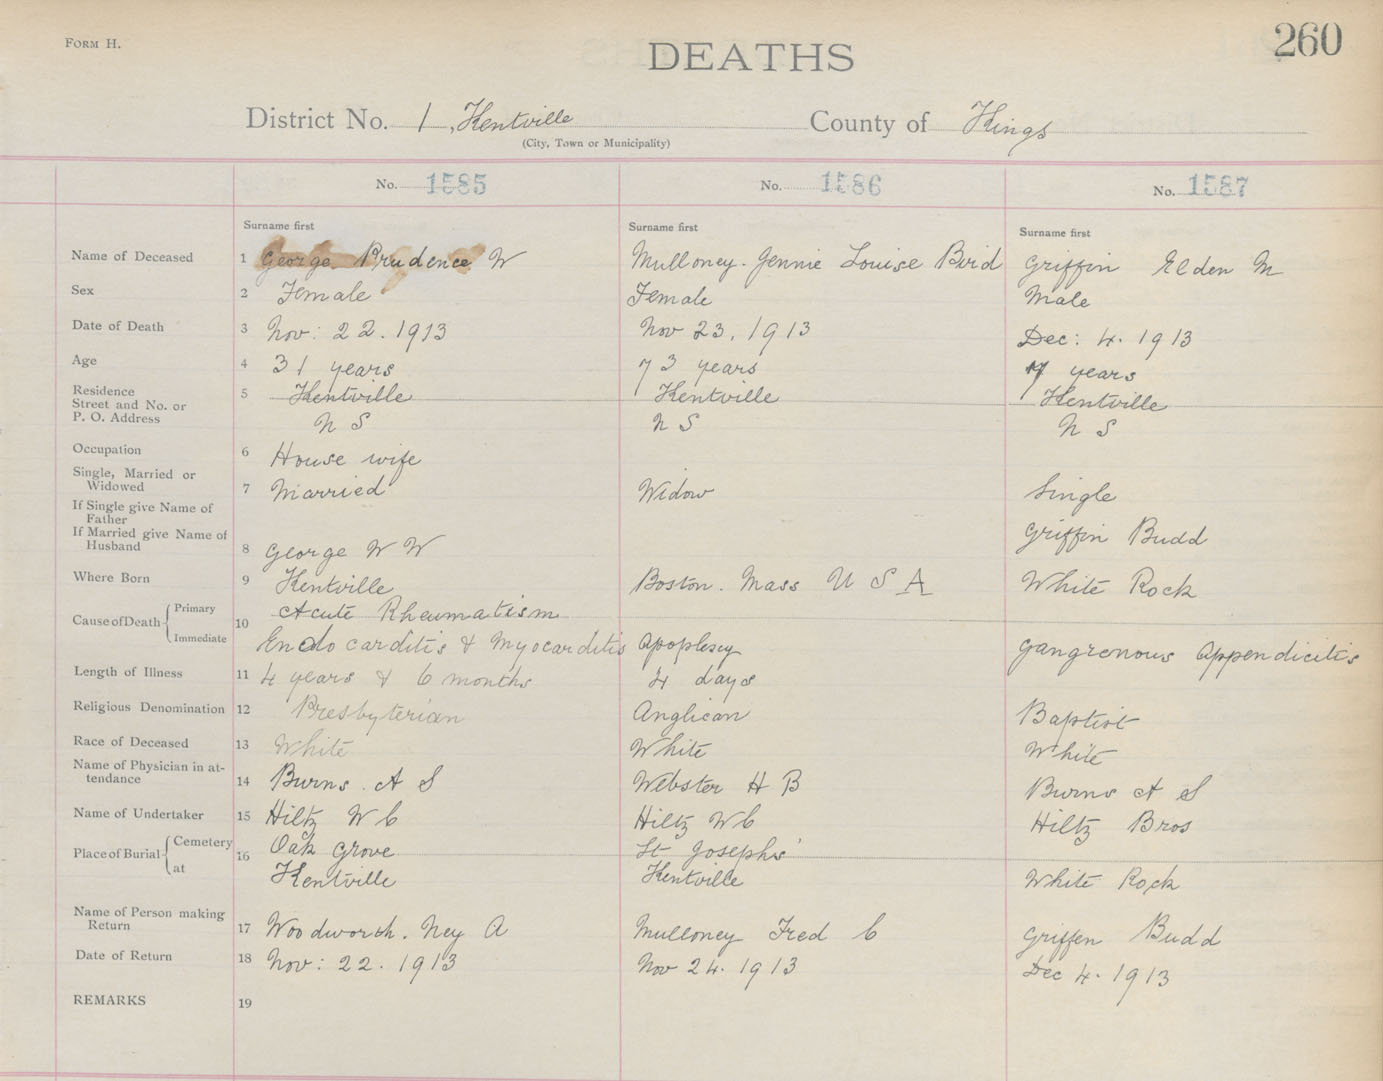 260
FORM H.
DEATHS
District No. 1, Kentville County of Kings
(City, Town or Municipality)
No. 1585 No. 1586 No. 1587
Surname first Surname first Surname first
Name of Deceased 1 George Prudence W Mulloney. Jennie Louise Bird Griffin Elden M
Sex 2 Female Female Male
Date of Death 3 Nov: 22. 1913 Nov 23, 1913 Dec: 4. 1913
Age 4 31 years 73 years 7 years
Residence 5 Kentville Kentville Kentville
Street and No. or
P. O. Address N S N S N S
Occupation 6 House wife
Single, Married or
Widowed 7 Married Widow Single
If Single give Name of
Father
If Married give Name of
Husband 8 George W W Griffin Budd
Where Born 9 Kentville Boston. Mass U S A White Rock
Cause of Death { Primary 10 Acute Rheumatism
Immediate Endocarditis & Myocarditis Apoplexy Gangrenous Appendicitis
Length of Illness 11 4 years & 6 months 4 days
Religious Denomination 12 Presbyterian Anglican Baptist
Race of Deceased 13 White White White
Name of Physician in at-
tendance 14 Burns. A S Webster H B Burns A S
Name of Undertaker 15 Hiltz W C Hiltz W C Hiltz Bros
Place of Burial { Cemetery 16 Oak Grove St Josephs'
at Kentville Kentville White Rock
Name of Person making
Return 17 Woodworth. Ney A Mulloney Fred C Griffen Budd
Date of Return 18 Nov: 22. 1913 Nov 24. 1913 Dec 4. 1913
REMARKS 19